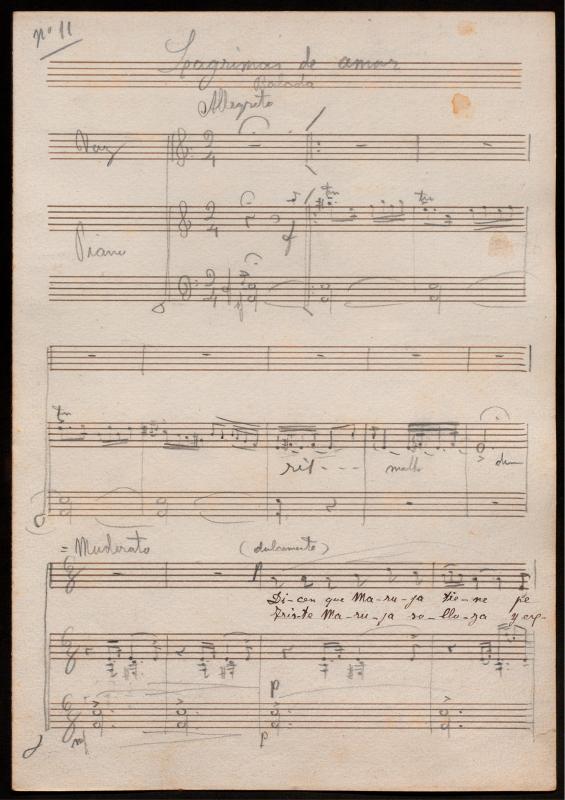 nº 11
Lagrimas de amor
Balada
Allegreto
Voz
Piano
f
tr tr
tr
rit - - - molto dim
= Moderato (dulcemente)
p
Di-cen que Ma-ru-ja tie-ne pe
Tris-te Ma-ru-ja so-llo-za y ex-
p
mf p